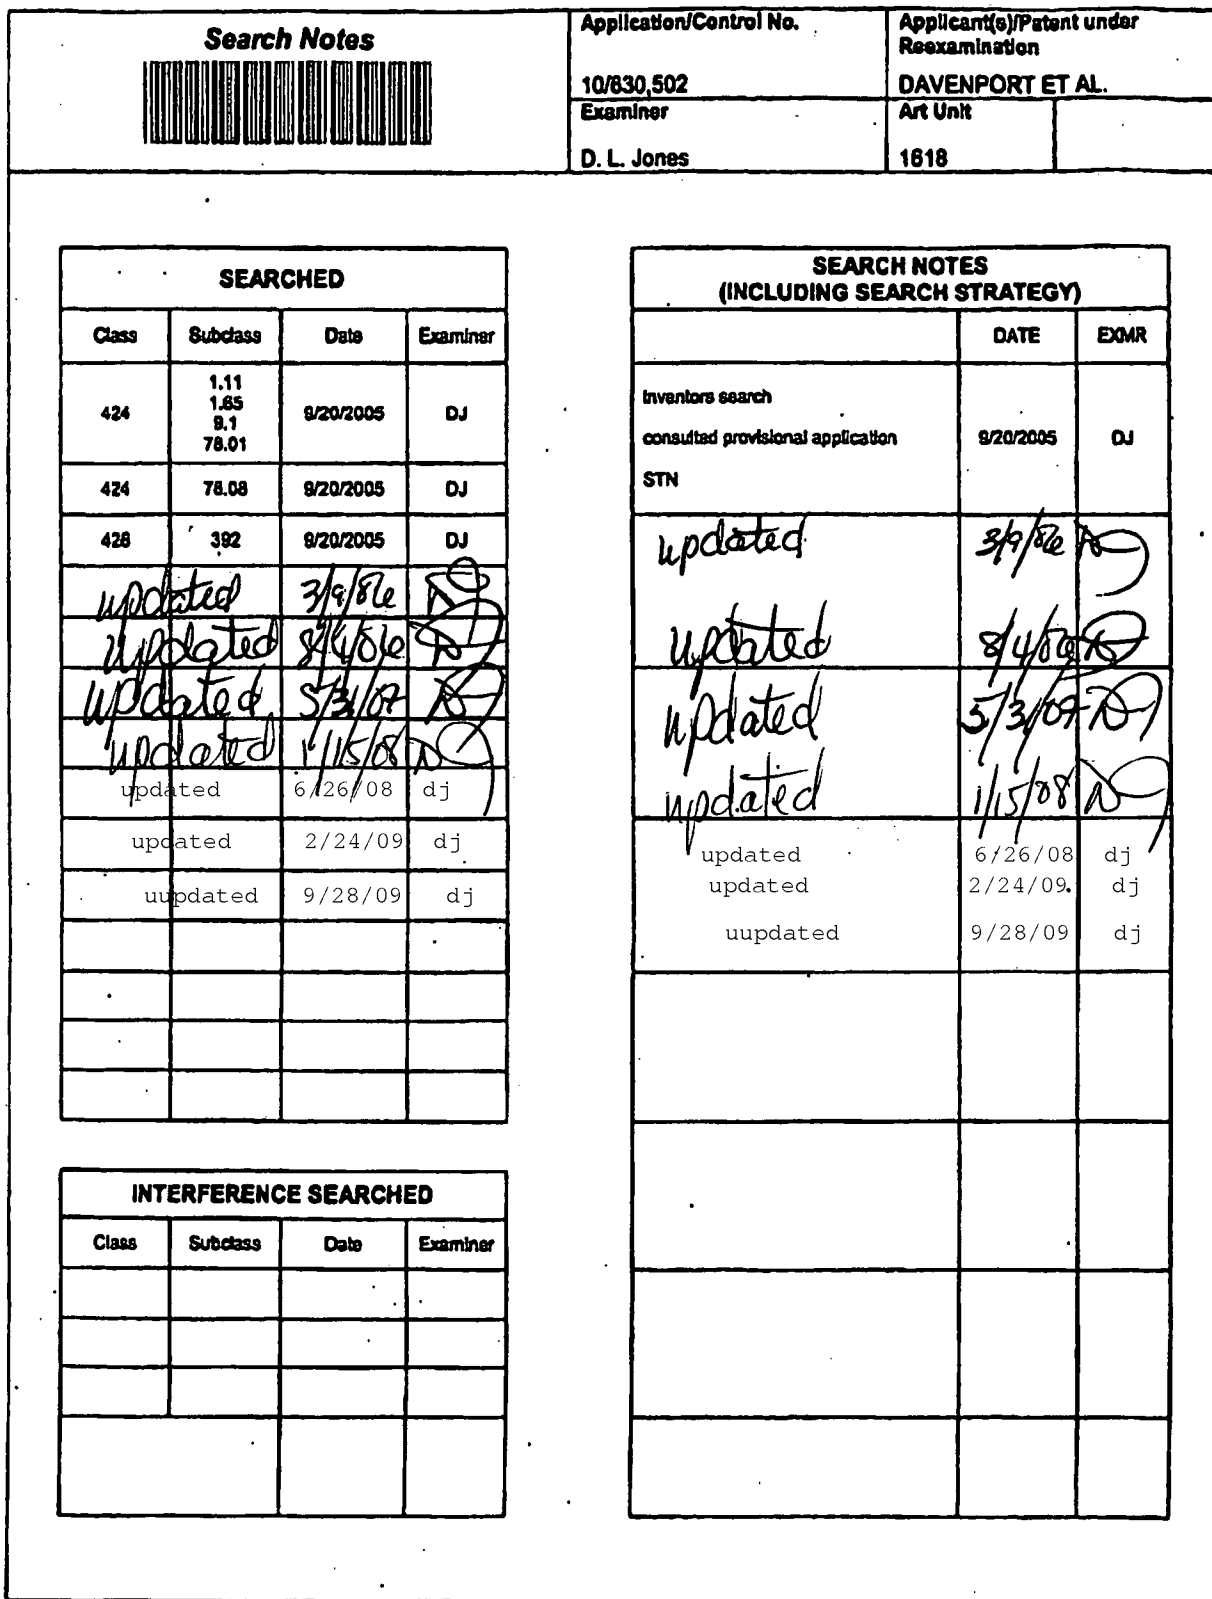 Search Notes
Application/Control No.
10/630,502
Applicant(s)/Patent under
Reexamination
DAVENPORT ET AL.
Examiner
D. L. Jones
Art Unit
1618
SEARCHED
Class Subclass Date Examiner
424 1.11 1.65 9.1 78.01 9/20/2005 DJ
424 78.08 9/20/2005 DJ
428 392 9/20/2005 DJ
updated 3/9/06
updated 8/4/06
updated 5/3/07
updated 1/15/08
updated 6/26/08 dj
updated 2/24/09 dj
uupdated 9/28/09 dj
INTERFERENCE SEARCHED
Class Subclass Date Examiner
SEARCH NOTES
(INCLUDING SEARCH STRATEGY)
DATE EXMR
Inventors search
consulted provisional application 9/20/2005 DJ
STN
updated 3/9/06
updated 8/4/06
updated 5/3/07
updated 1/15/08
updated 6/26/08 dj
updated 2/24/09 dj
uupdated 9/28/09 dj